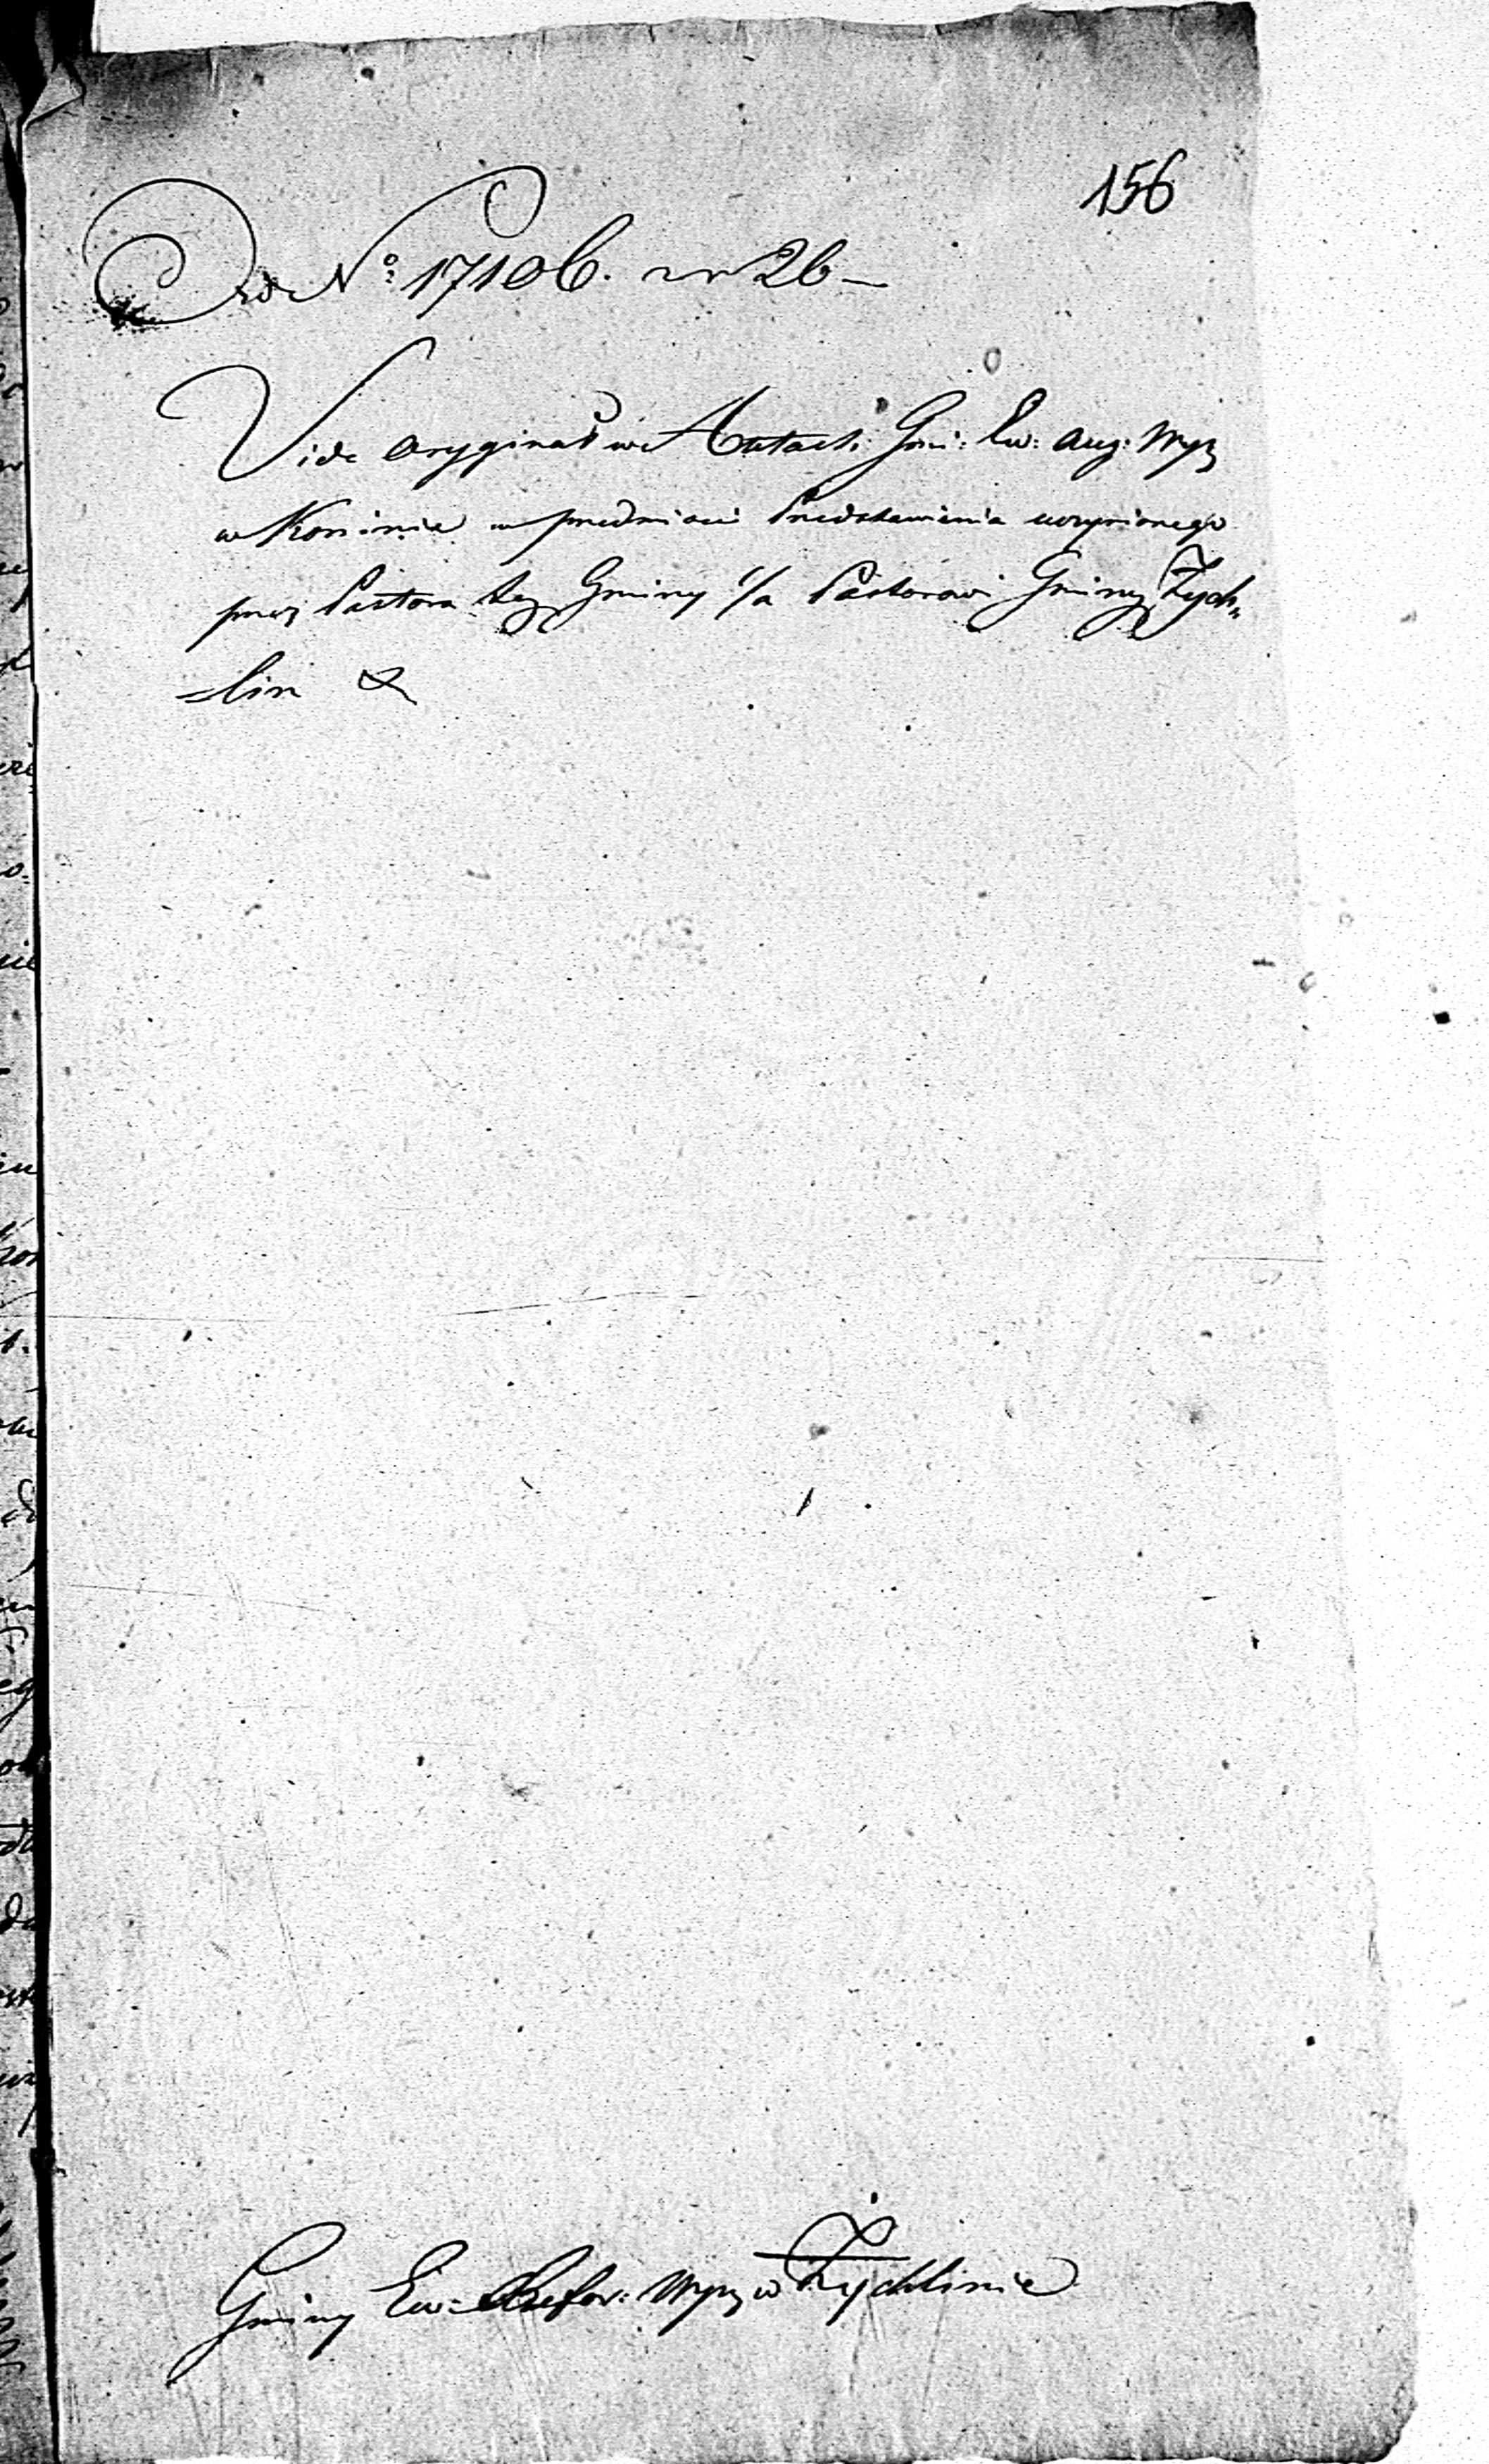 156
Ad Nº 17106. r 26
Vide oryginał w Aktach Gmi: Ew: Aug: Wyz
w Koninie w przedmiocie Przedstawienia uczynionego
przez Pastora tey Gminy c/a Pastorowi Gminy Żych„
=lin &
Gminy Ew: Refor: Wyz w Żychlinie